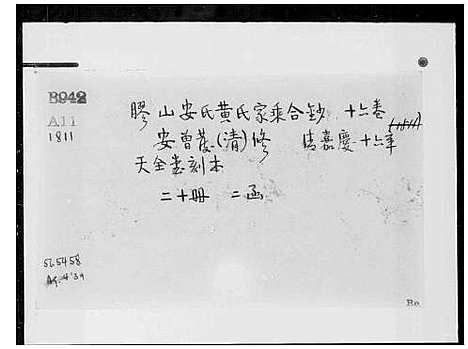 B942
A11
1811
膠山安氏黄氏家乘合鈔 十六卷
(1811)
安曾茂(清)修 清嘉慶十六年
天全堂刻本
二十冊 二函
565458
Ro